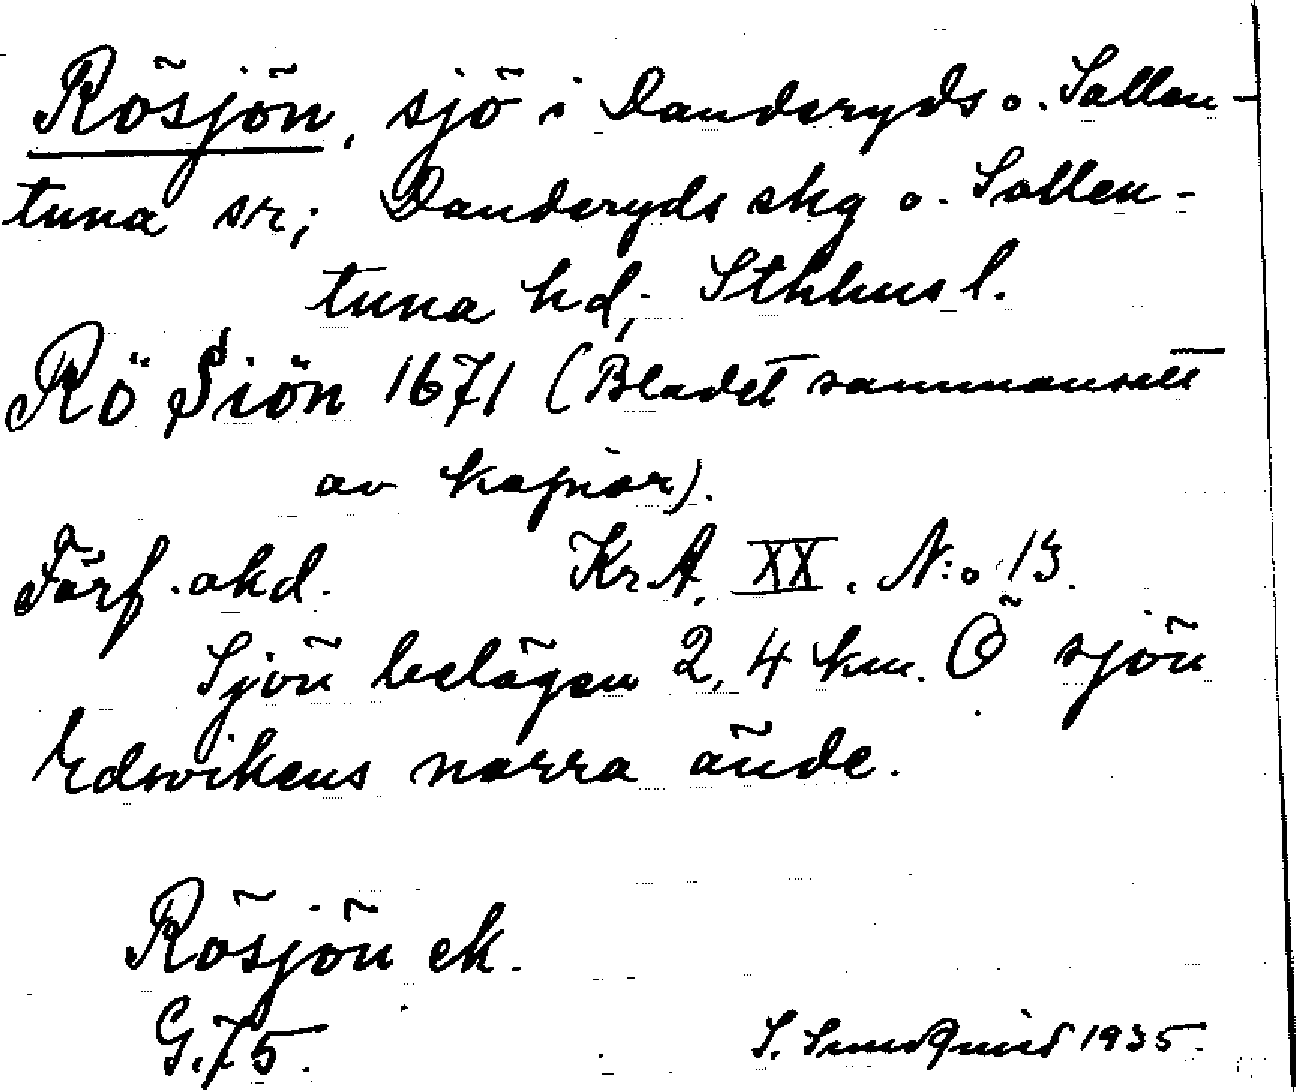 Rösjön, sjö i Danderyds o. Sollen-
tuna sr; Danderyds skg o. Sollen-
tuna hd; Sthlms l.
Rö Siön 1671 (Bladet sammansatt
av kopior).
Förf. okd. Kr.A. XX. N:o 13.
Sjön belägen 2,4 km. Ö sjön
Edsvikens norra ände.
Rösjön ek.
G.75. S. Sundquist 1935.